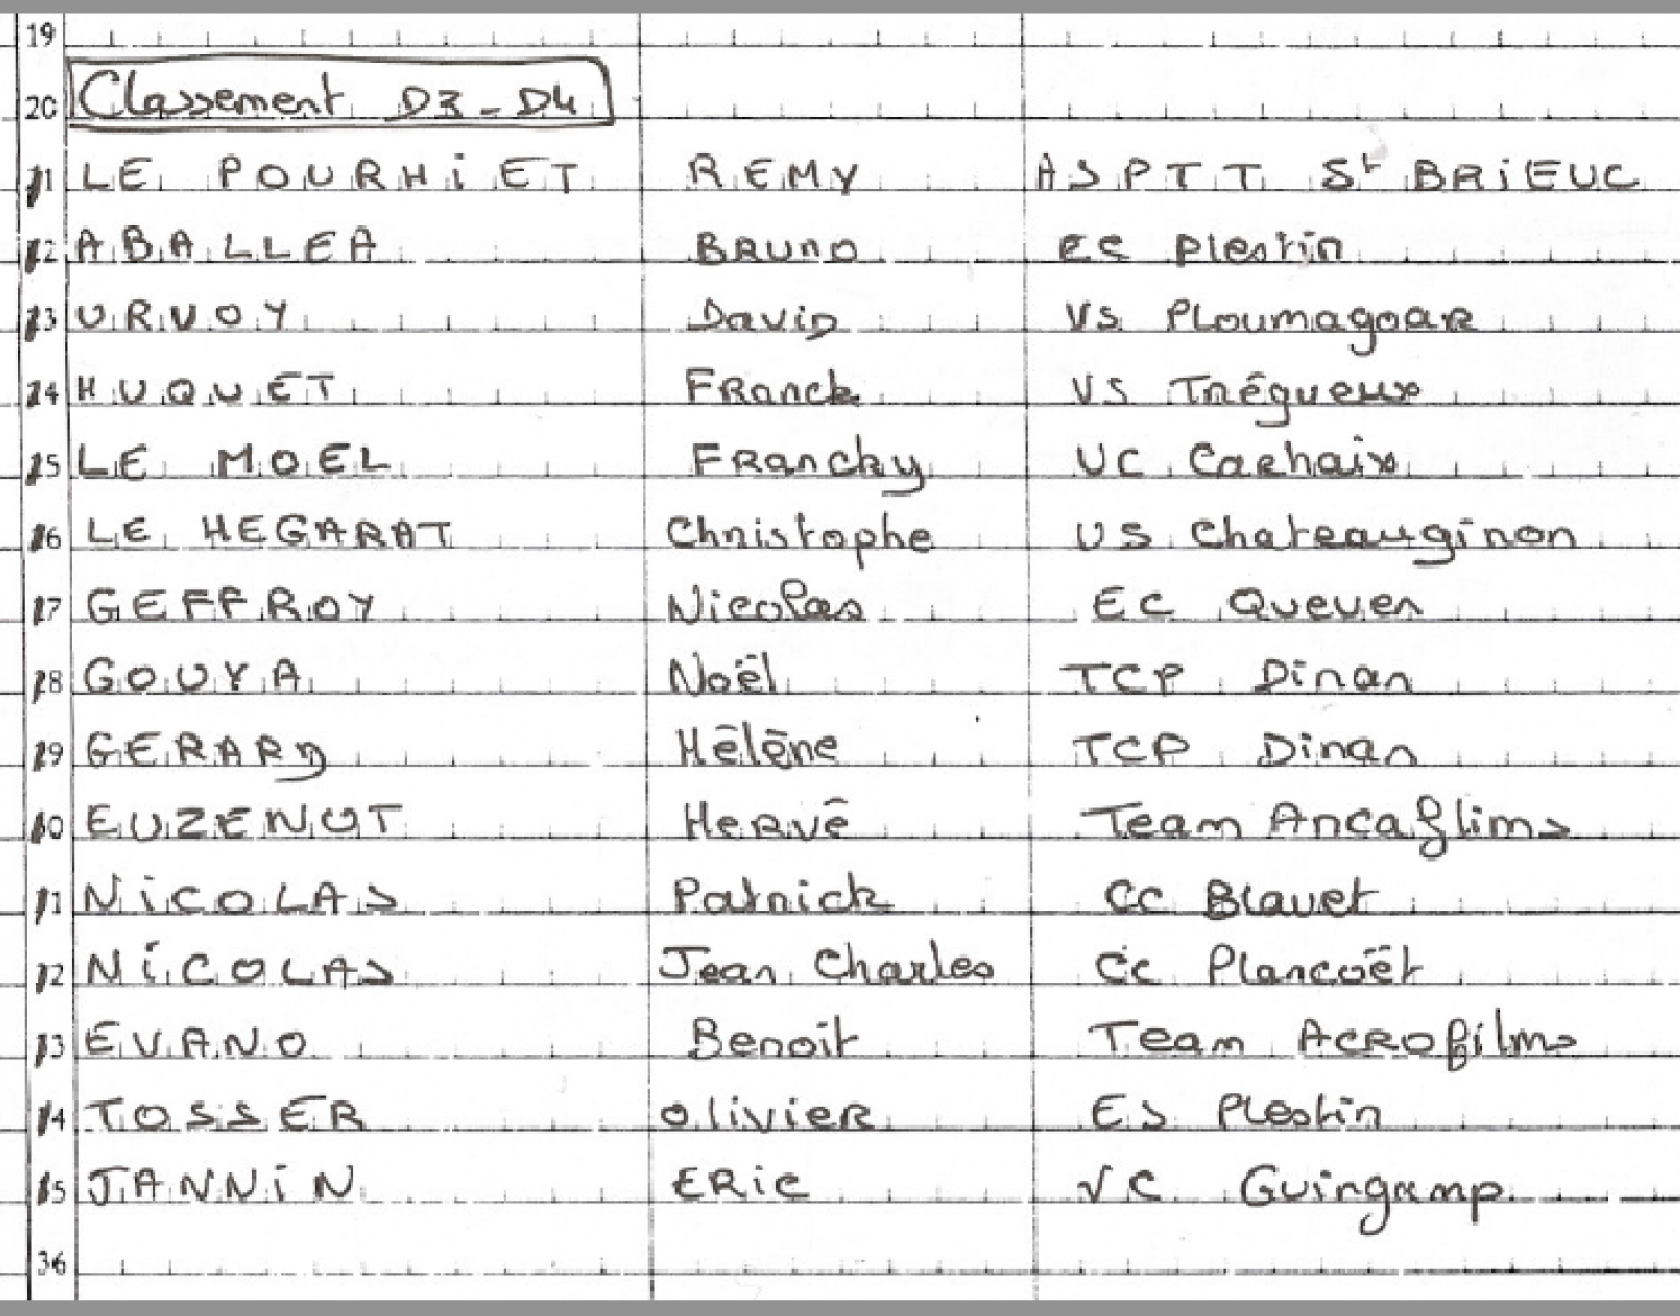 19
20 Classement D3-D4
1 LE POURHiET REMY ASPTT St BRiEUC
2 ABALLEA BRUNO EC Plestin
3 URVOY David VS PLoumagoar
4 HUQUET FRanck VS Trégueux
5 LE MOEL FRancky UC Carhaix
6 LE HEGARAT Christophe US Chateauginon
7 GEFFROY Nicolas EC Queven
8 GOUYA Noël TCP Dinan
9 GERARD Hélène TCP Dinan
10 EUZENOT HeRvé Team Ancaflims
11 NiCOLAS Patrick CC Blavet
12 NiCOLAS Jean Charles CC Plancoët
13 EVANO Benoit Team ACROfilms
14 TOSSER Olivier ES Plestin
15 JANNiN ERic VC Guingamp
36